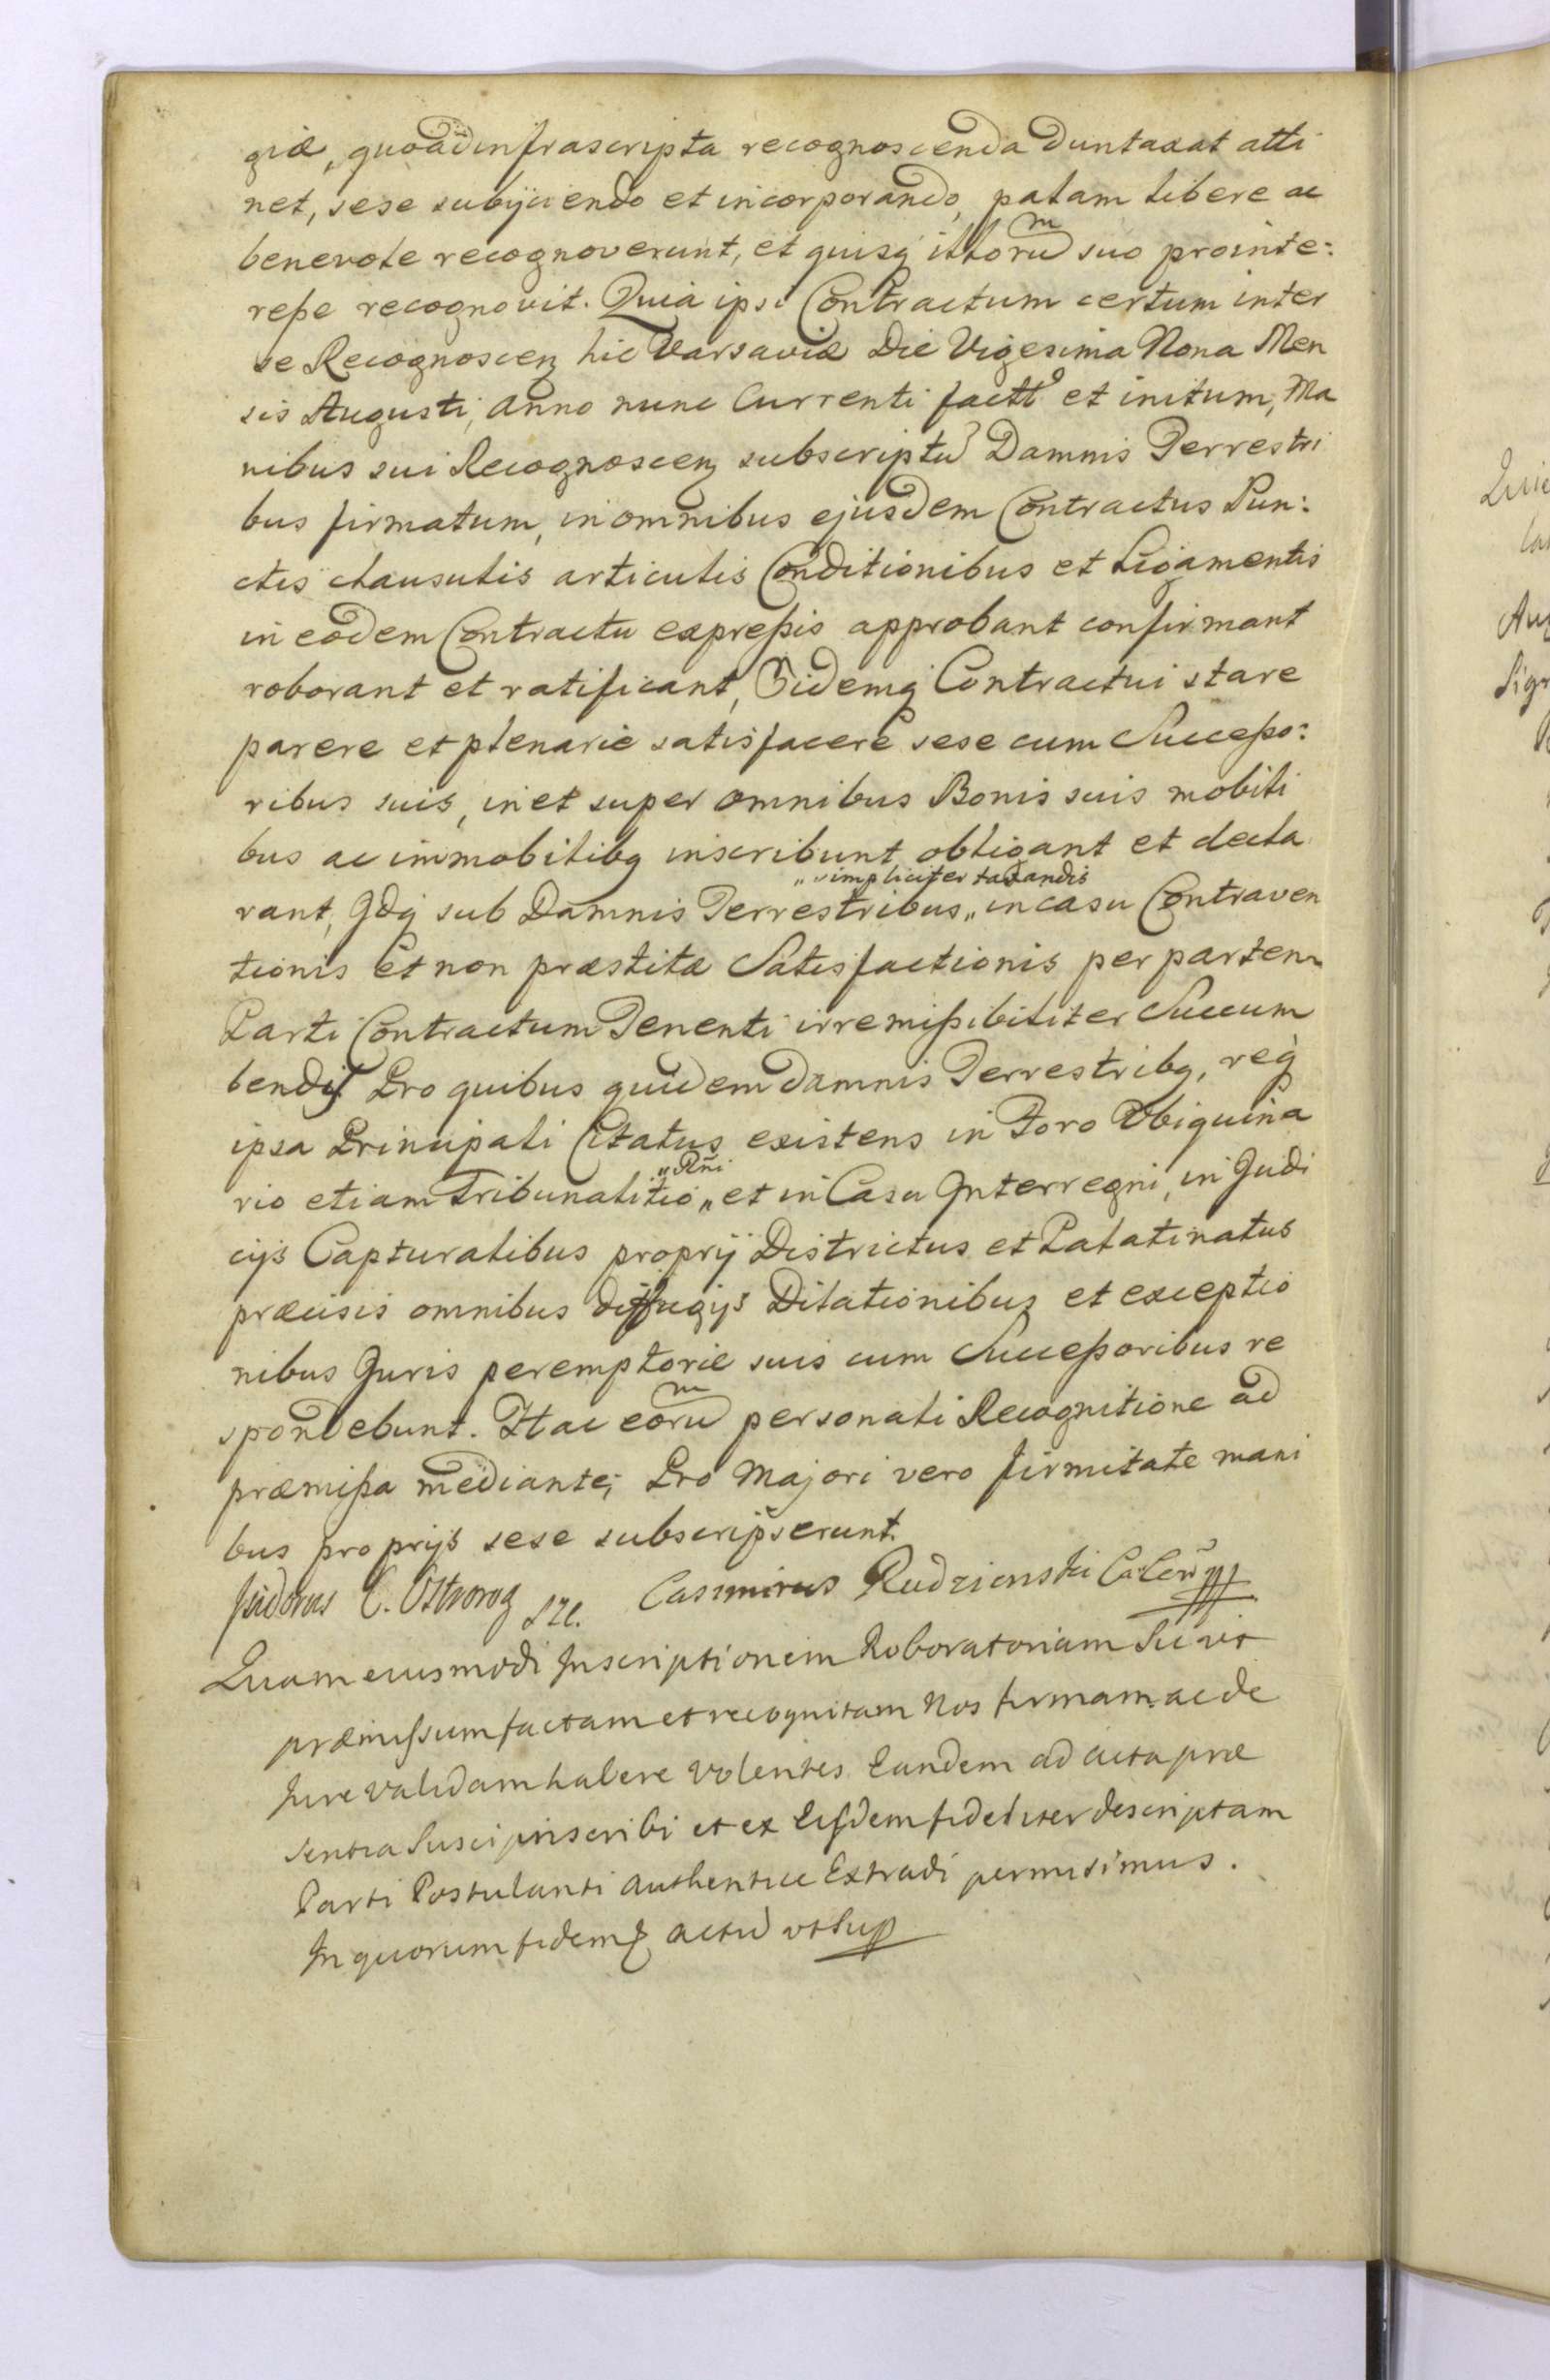 giæ, quoad infrascripta recognoscenda duntaxat atti
net, sese subijciendo et incorporando, palam libere ac
benevole recognoverunt, et quisq illorum suo prointe:
reße recognovit. Quia ipsi Contractum certum inter
se Recognoscen hic Varsaviæ Die Vigesima Nona Men
sis Augusti, Anno nunc Currenti factũ et initum, Ma
nibus sui Recognoscen subscriptũ Damnis Terrestri
bus firmatum, in omnibus ejusdem Contractus Pun:
ctis clausulis articulis Conditionibus et Ligamentis
in eodem Contractu expreßis approbant confirmant
roborant et ratificant, Eidemq Contractui stare
parere et plenarie satisfacere sese cum Succeßo:
ribus suis, in et super omnibus Bonis suis mobili
bus ac immobilibq inscribunt obligant et decla
„simpliciter taxandis
rant, Idq sub Damnis Terrestribus „ in casu Contraven
tionis et non præstitæ Satisfactionis per partem
Parti Contractum Tenenti irremißibiliter Succum
bendis Pro quibus quidem damnis Terrestribq, req
ipsa Principali Citatus existens in Foro Vbiquina
„Rñi
rio etiam Tribunalitio „ et in Casu Interregni, in Judi
cijs Capturalibus proprij Districtus et Palatinatus
præcisis omnibus diffugijs Dilationibus et exceptio
nibus Juris peremptorie suis cum Succeßoribus re
spondebunt. Hac eorum personali Recognitione ad
præmißa mediante; Pro Majori vero firmitate mani
bus proprijs sese subscripserunt.
Isidorus C. Ostrorog
Casimirus Rudzienski
Quam eiusmodi Inscriptionem Roboratoriam Sic ut
præmissum factam et recognitam Nos firmam ac de
Jure validam habere volentes Eandem ad acta præ
sentia Suscipi inscribi et ex Eisdem fideliter descriptam
Parti Postulanti authentice Extradi permisimus.
In quorum fidem actũ vt Sup